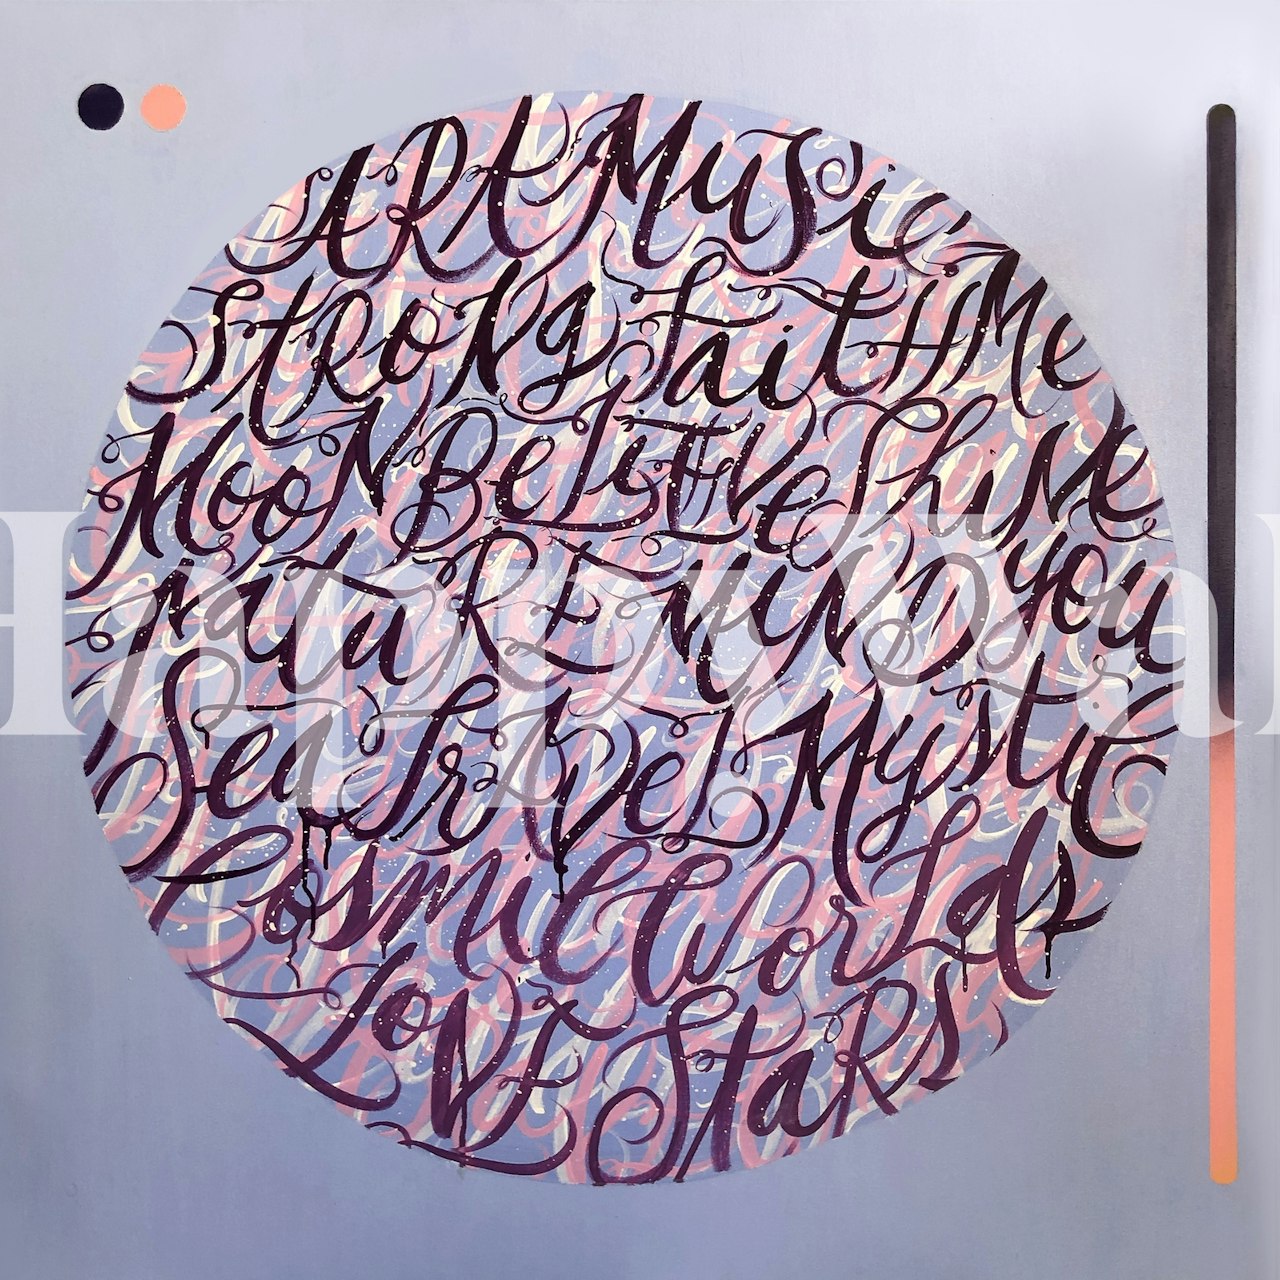 ART Music
Strong Faith Me
Moon Believe Shine
Nature Vinyl you
Sea Travel Mystic
Cosmic Worlds
Love Stars
Happywall